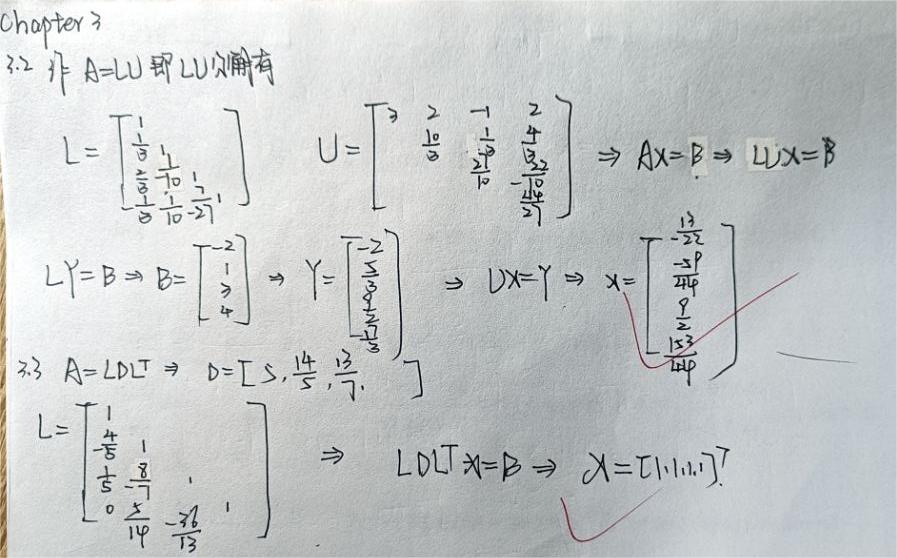 Chapter 3
3.2 作 A=LU 即 LU分解有
L = [1
1/3 1
2/3 -1/10 1
-1/3 1/10 -7/27 1]
U = [3 2 -1 2
10/3 1/3 4/3
27/10 -32/10
44/27]
⇒ AX=B ⇒ LUX=B
LY=B ⇒ B=[-2 1 3 4] ⇒ Y=[-2 5/3 9/2 -17/3] ⇒ UX=Y ⇒ x=[-13/22 -59/44 9/2 -153/44]
3.3 A=LDLT ⇒ D=[5, 14/5, 13/7, ]
L = [1
-4/5 1
1/5 -8/7 1
0 5/14 -36/13 1]
⇒ LDLT x=B ⇒ X=[1,1,1,1]T